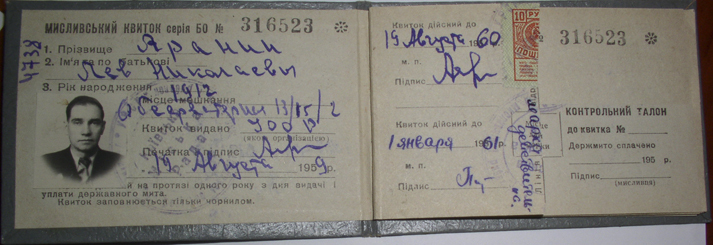 МИСЛИВСЬКИЙ КВИТОК серія БО № 316523
4738
1. Прізвище Яранин
2. Ім'я та по батькові
Лев Николаевич
3. Рік народження 1912
Місце мешкання
13/15/2
Квиток видано УООР
(якою організацією)
Печатка і підпис
19 Августа 1959
на протязі одного року з дня видачі і
уплати державного мита.
Квиток заповнюється тільки чорнилом.
Квиток дійсний до
19 Августа 1960
м. п.
Підпис
Квиток дійсний до
1 января 1961 р.
м. п.
Підпис
10 РУ
марка
действительна
Лінія
№ 316523
КОНТРОЛЬНИЙ ТАЛОН
до квитка №
Держмито сплачено
195 р.
Підпис
(мисливця)